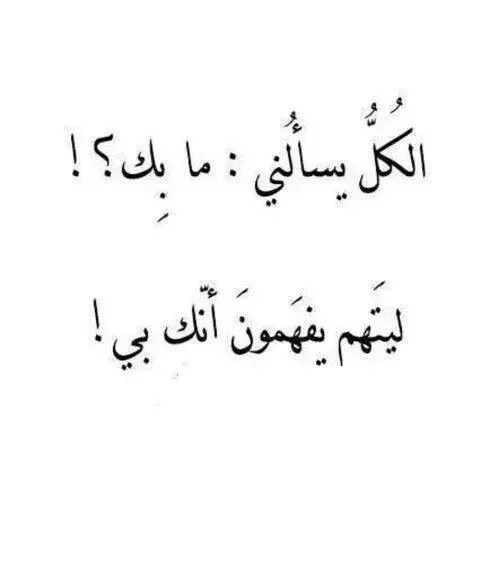 الكُلُّ يسألُني : ما بِك؟ !
ليتَهم يفهَمونَ أنّك بي !